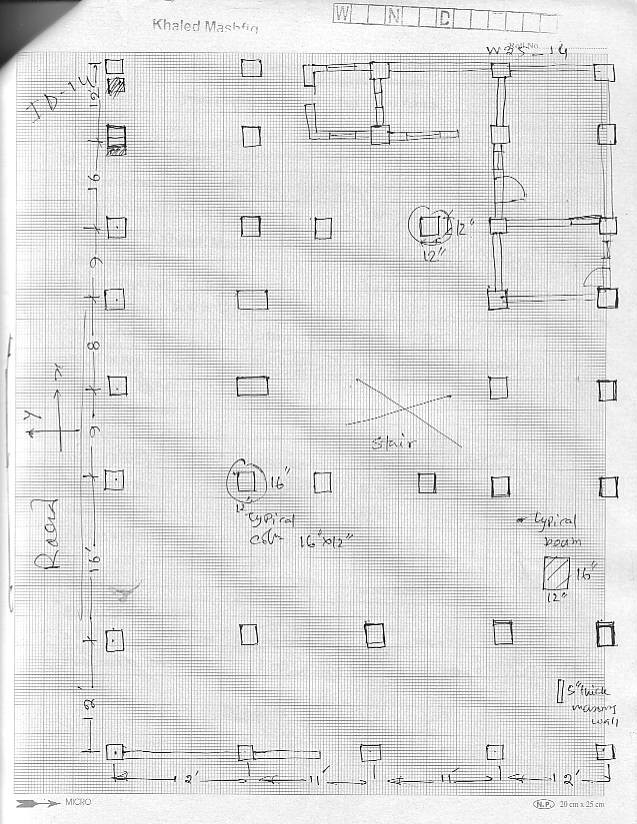 Khaled Mashfiq
W N D
Roll No.
W35-14
ID-14
12'
6
9
8
9
16'
12'
x
Y
Road
12"
12"
Stair
16"
12"
typical
col<sup>m</sup> 16"x12"
typical
beam
16"
12"
5" thick
masonry
wall
12'
11'
11'
12'
MICRO
N.P. 20 cm x 25 cm